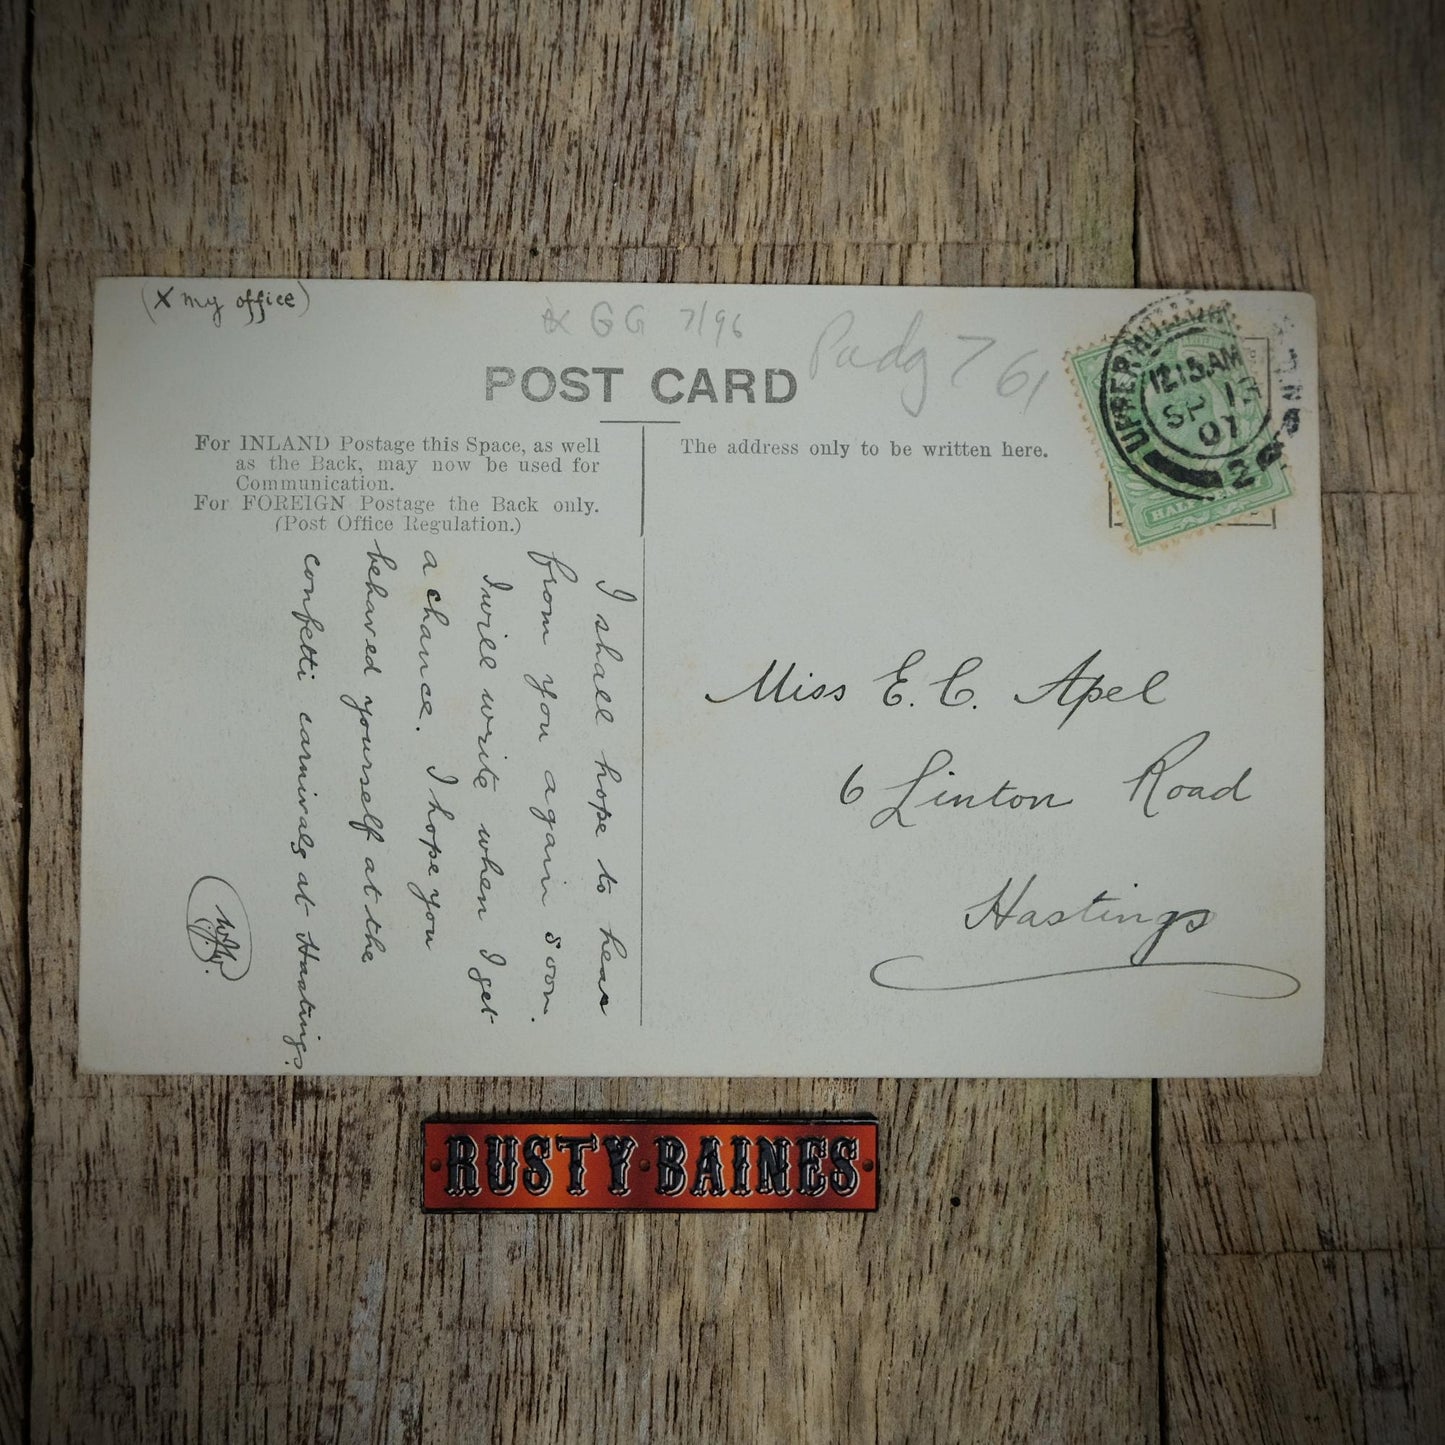 (X my office)
X GG 7/96
Padg 7 61
POST CARD
For INLAND Postage this Space, as well
as the Back, may now be used for
Communication.
For FOREIGN Postage the Back only.
(Post Office Regulation.)
The address only to be written here.
UPPER HOLLOWAY
12.15 AM
SP 1
07
2
HALF
I shall hope to hear
from you again soon.
I will write when I get
a chance. I hope you
behaved yourself at the
confetti carnivals at Hastings.
Miss E. C. Apel
6 Linton Road
Hastings
RUSTY BAINES